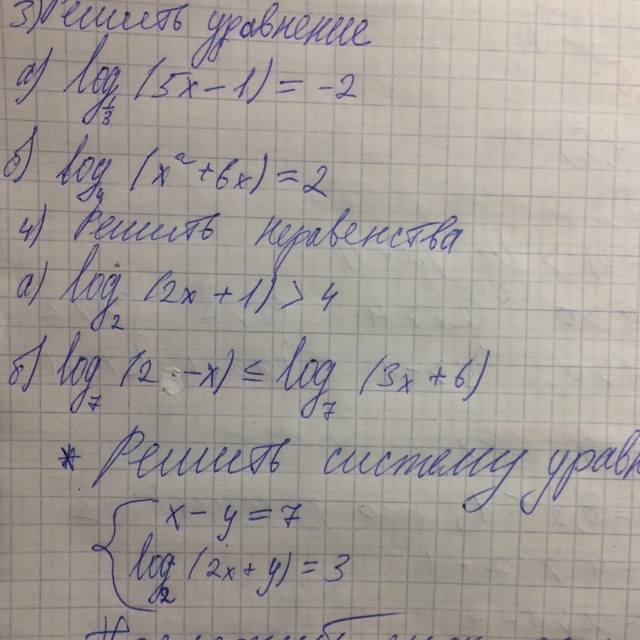 3) Решить уравнение
а) log_{1/3} (5x - 1) = -2
б) log_4 (x² + 6x) = 2
4) Решить неравенства
а) log_2 (2x + 1) > 4
б) log_7 (2 - x) ≤ log_7 (3x + 6)
* Решить систему уравн
{ x - y = 7
log_2 (2x + y) = 3